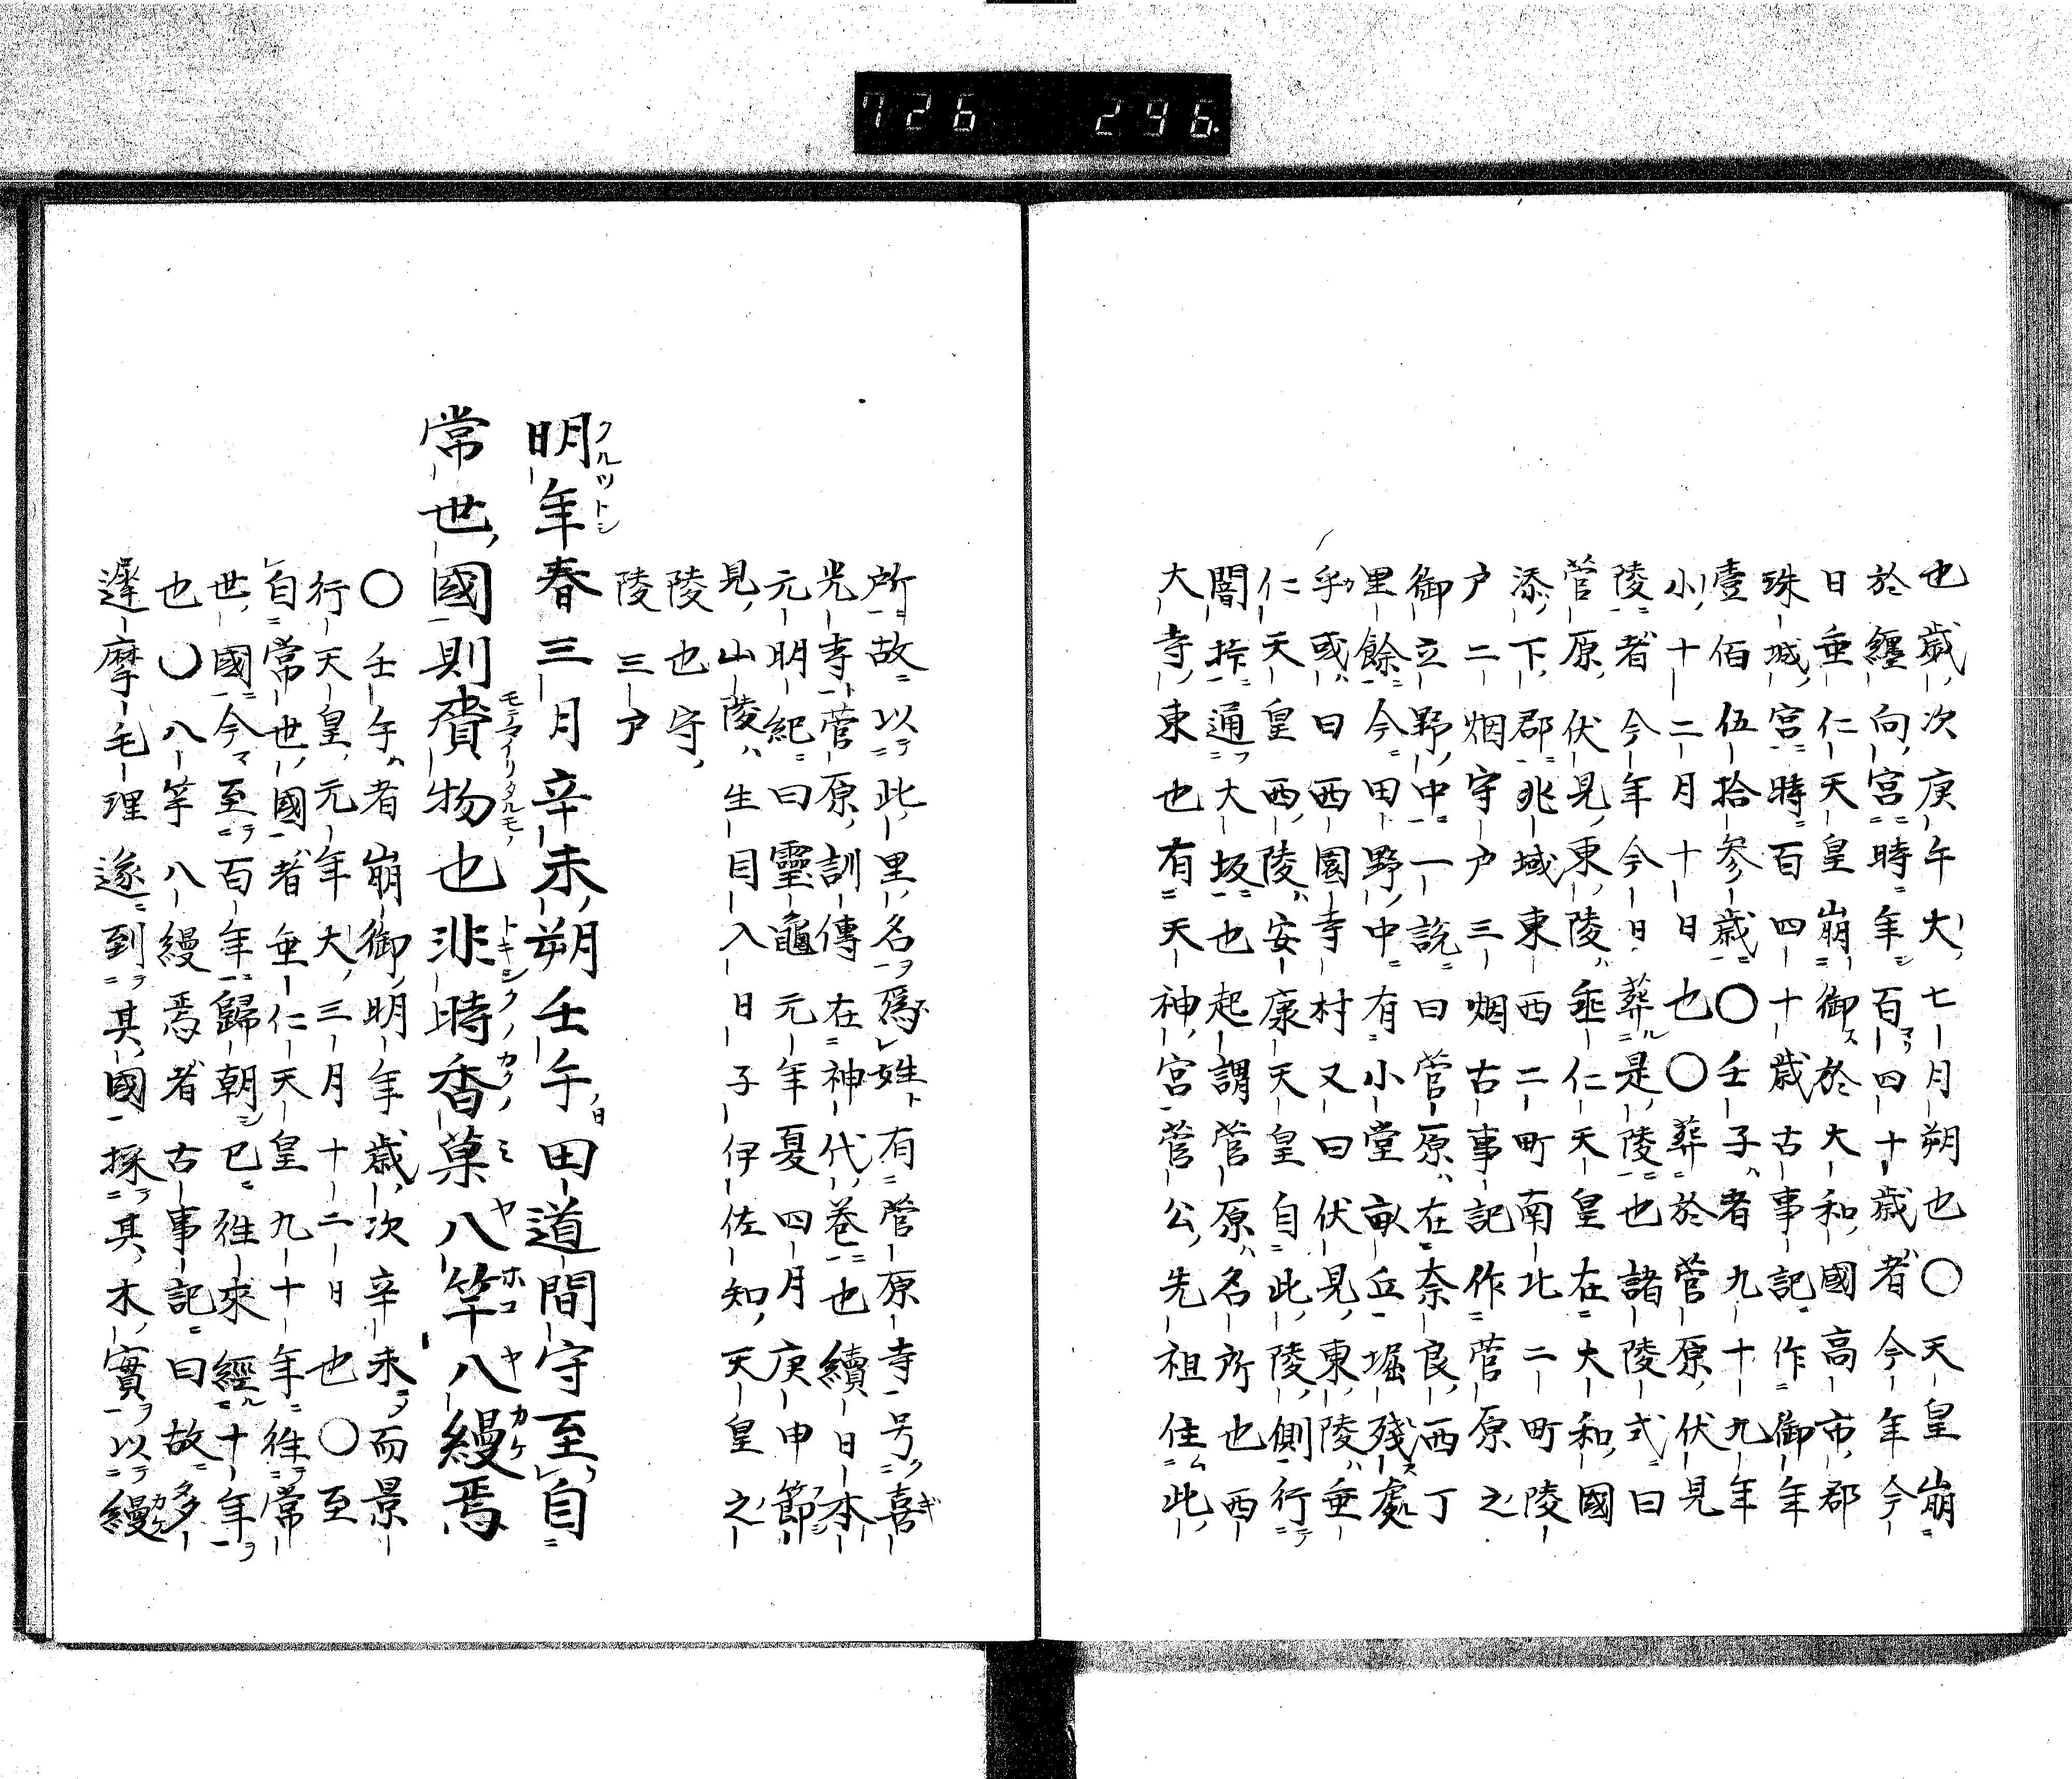 726 296.
也歳次庚午大七月朔也○天皇崩
於纒向宮時年百四十歳者今年今
日垂仁天皇崩御於大和國高市郡
珠城宮時百四十歳古事記作御年
壹佰伍拾參歳○壬子者九十九年
小十二月十日也○葬於菅原伏見
陵者今年今日葬是陵也諸陵式曰
菅原伏見東陵垂仁天皇在大和國
添下郡兆域東西二町南北二町陵
戸二烟守戸三烟古事記作菅原之
御立野中一説曰菅原在奈良西丁
里餘今田野中有小堂畝丘堀殘處
乎或曰西園寺村又曰伏見東陵垂
仁天皇西陵安康天皇自此陵側行
闇捹通大坂也起謂菅原名所也西
大寺東也有天神宮菅公先祖住此
所故以此里名爲姓有菅原寺号喜
光寺菅原訓傳在神代巻也續日本
元明紀曰靈龜元年夏四月庚申節
見山陵生目入日子伊佐知天皇之
陵也守
陵三戸
明年春三月辛未朔壬午田道間守至自
常世國則賷物也非時香菓八竿八縵焉
○壬午者崩御明年歳次辛未而景
行天皇元年大三月十二日也○至
自常世國者垂仁天皇九十年徃常
世國今至百年歸朝已徃來經十年
也○八竿八縵焉者古事記曰故多
遲摩毛理遂到其國採其木實以縵